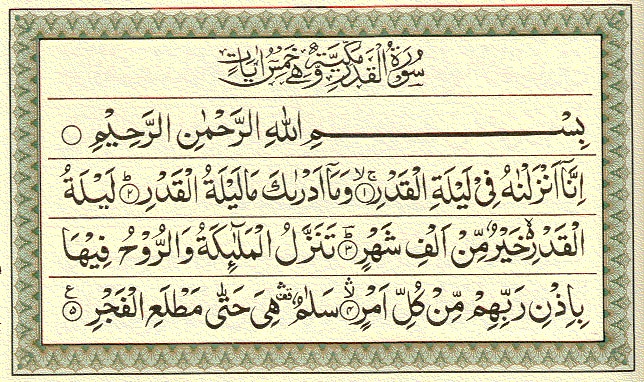 سُوْرَةُ الْقَدْرِ مَكِّيَّةٌ وَّهِيَ خَمْسُ اٰيَاتٍ
بِسْمِ اللهِ الرَّحْمٰنِ الرَّحِيْمِ
اِنَّآ اَنْزَلْنٰهُ فِيْ لَيْلَةِ الْقَدْرِ ۚۖ ﴿۱﴾ وَمَآ اَدْرٰىكَ مَا لَيْلَةُ الْقَدْرِ ؕ ﴿۲﴾ لَيْلَةُ
الْقَدْرِ ۙ خَيْرٌ مِّنْ اَلْفِ شَهْرٍ ؕ ﴿۳﴾ تَنَزَّلُ الْمَلٰٓئِكَةُ وَالرُّوْحُ فِيْهَا
بِاِذْنِ رَبِّهِمْ مِّنْ كُلِّ اَمْرٍ ۙۛ ﴿۴﴾ سَلٰمٌ ۛ هِيَ حَتّٰى مَطْلَعِ الْفَجْرِ ﴿۵﴾ ع